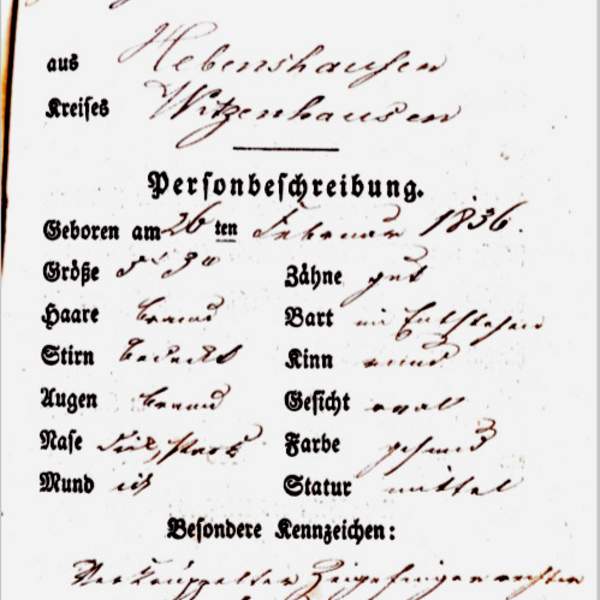 aus Hebenshausen
Kreises Witzenhausen
Personbeschreibung.
Geboren am 26 ten Februar 1836.
Größe 5' 3" Zähne gut
Haare braun Bart im Entstehen
Stirn bedeckt Kinn rund
Augen braun Gesicht oval
Nase dick, stark Farbe gesund
Mund Statur mittel
Besondere Kennzeichen:
Verkrüppelter Zeigefinger rechter